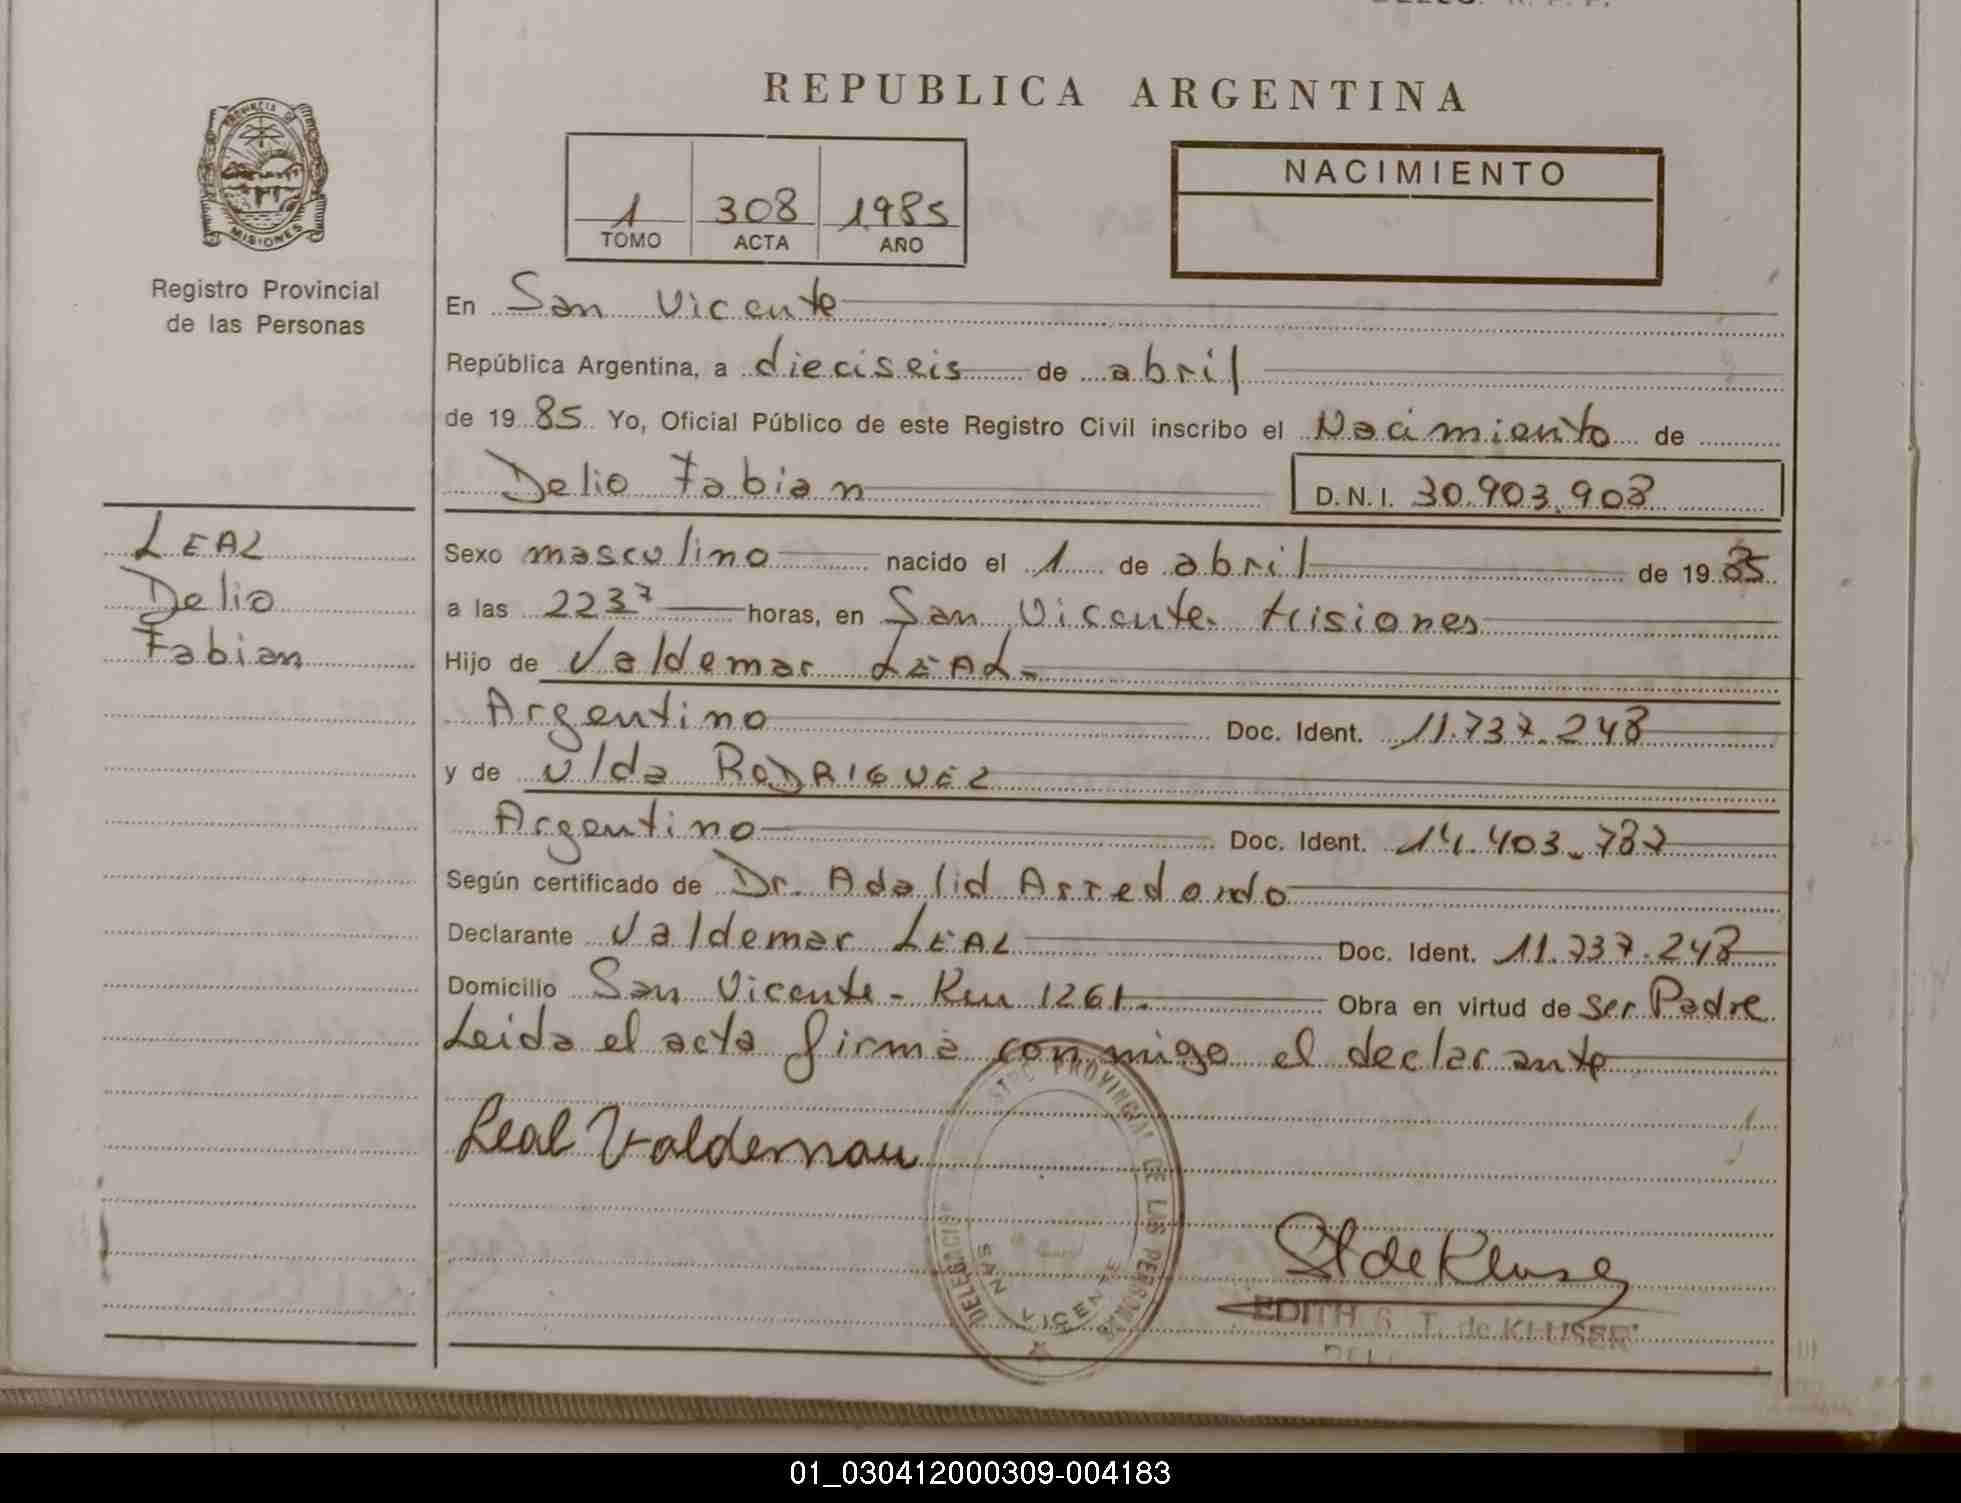 REPUBLICA ARGENTINA
PROVINCIA DE
MISIONES
Registro Provincial
de las Personas
1 308 1985
TOMO ACTA AÑO
NACIMIENTO
En San Vicente
República Argentina, a dieciseis de abril
de 19 85 Yo, Oficial Público de este Registro Civil inscribo el Nacimiento de
Delio Fabian D.N.I. 30.903.908
LEAL
Delio
Fabian
Sexo masculino nacido el 1 de abril de 19 85
a las 22 37 horas, en San Vicente. Misiones
Hijo de Valdemar LEAL.
Argentino Doc. Ident. 11.737.248
y de Ulda RODRIGUEZ
Argentino Doc. Ident. 14.403.787
Según certificado de Dr. Adalid Arredondo
Declarante Valdemar LEAL Doc. Ident. 11.737.248
Domicilio San Vicente - Km 1261. Obra en virtud de ser Padre
Leida el acta firma conmigo el declarante
Leal Valdemar
PROVINCIAL DE LAS PERSONAS
DELEGACION
SAN VICENTE
St de Kluser
EDITH G. T. de KLUSER
01_030412000309-004183